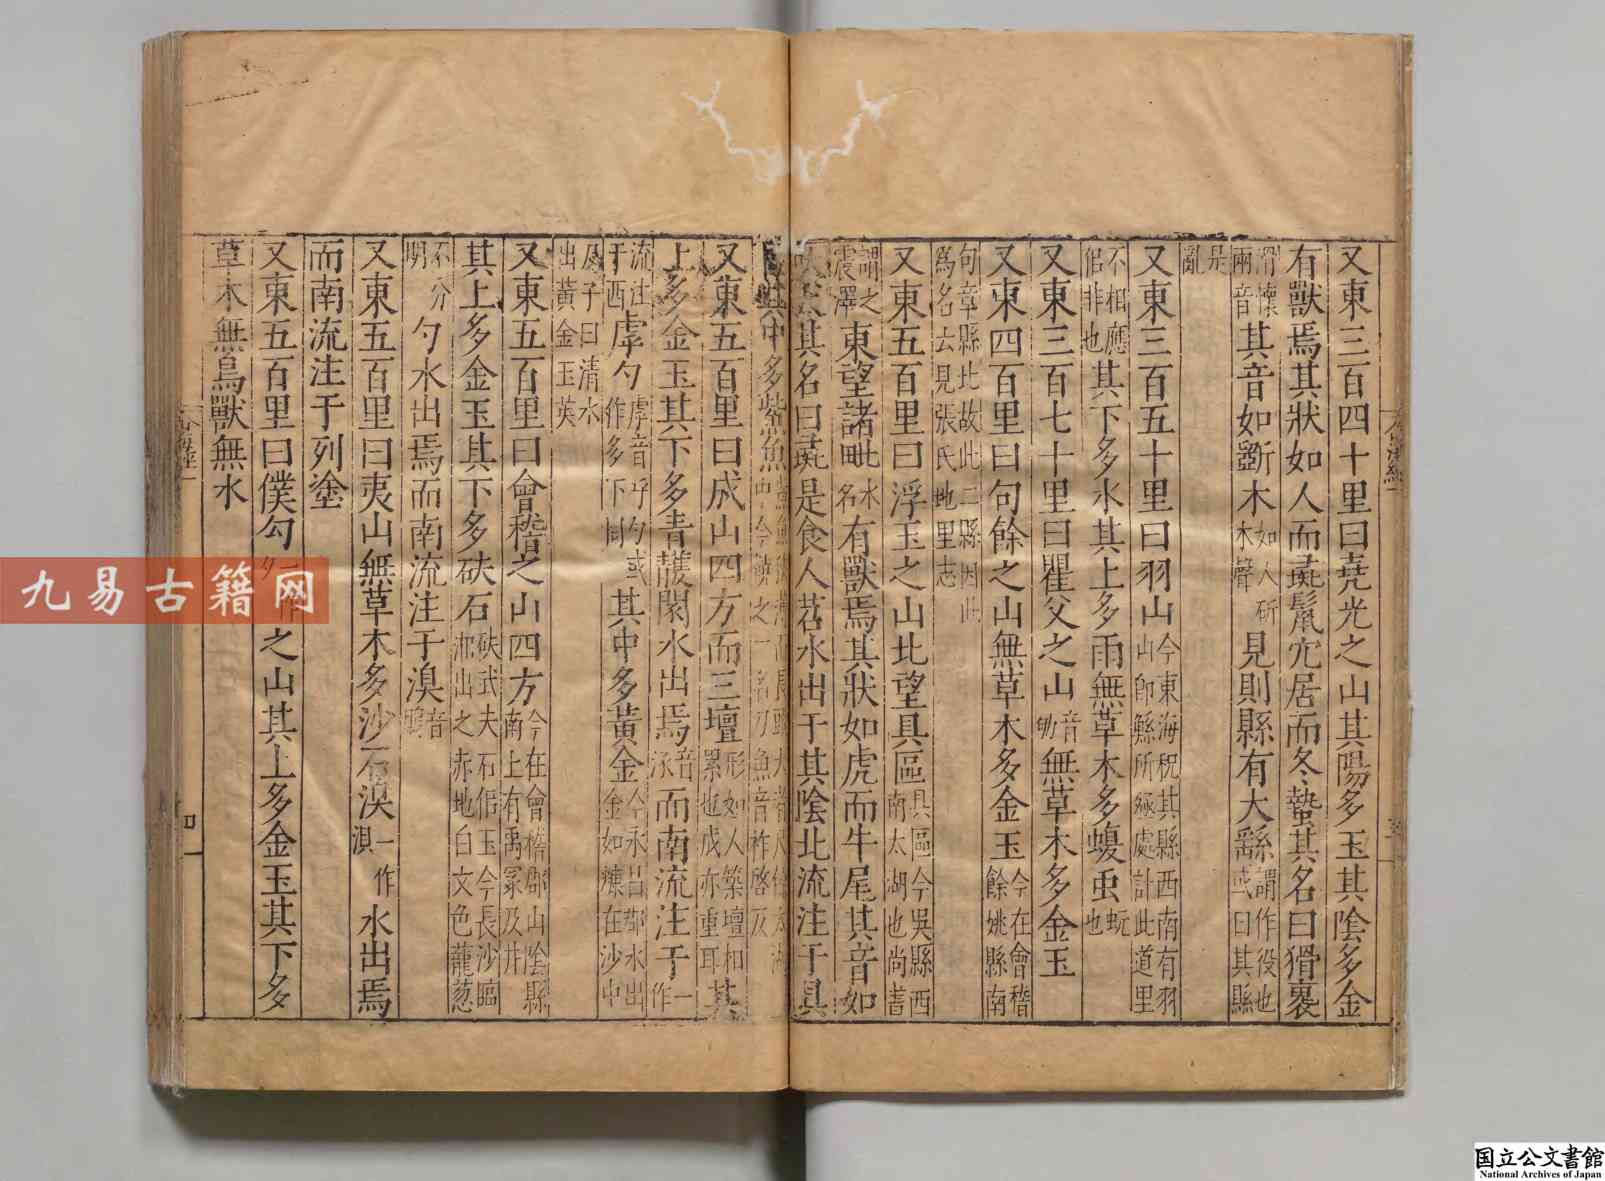 又東三百四十里曰堯光之山其陽多玉其陰多金
有獸焉其狀如人而彘鬣穴居而冬蟄其名曰猾褢
滑懷兩音其音如斲木如人斫木聲見則縣有大繇謂作役也或曰其縣
是亂
又東三百五十里曰羽山今東海祝其縣西南有羽山即鯀所殛處計此道里
不相應佀非也其下多水其上多雨無草木多蝮虫蚖也
又東三百七十里曰瞿父之山音劬無草木多金玉
又東四百里曰句餘之山無草木多金玉今在會稽餘姚縣南
句章縣北故此二縣因此爲名云見張氏地里志
又東五百里曰浮玉之山北望具區具區今吳縣西南太湖也尚書
謂之震澤東望諸毗水名有獸焉其狀如虎而牛尾其音如
吠犬其名曰彘是食人苕水出于其陰北流注于具
區其中多鮆魚
又東五百里曰成山四方而三壇形如人築壇相累也成亦重耳其
上多金玉其下多青雘䦘水出焉音涿而南流注于一作
流注于西虖勺虖音呼勺或作多下同其中多黃金今永昌郡水出金如糠在沙中
尸子曰清水出黃金玉英
又東五百里曰會稽之山四方今在會稽郡山陰縣南上有禹冢及井
其上多金玉其下多砆石砆武夫石佀玉今長沙臨湘出之赤地白文色蘢葱
不分明勺水出焉而南流注于湨音鶪
又東五百里曰夷山無草木多沙石湨一作浿水出焉
而南流注于列塗
又東五百里曰僕勾一作夕之山其上多金玉其下多
草木無鳥獸無水
山海經一
四
九易古籍网
国立公文書館
National Archives of Japan